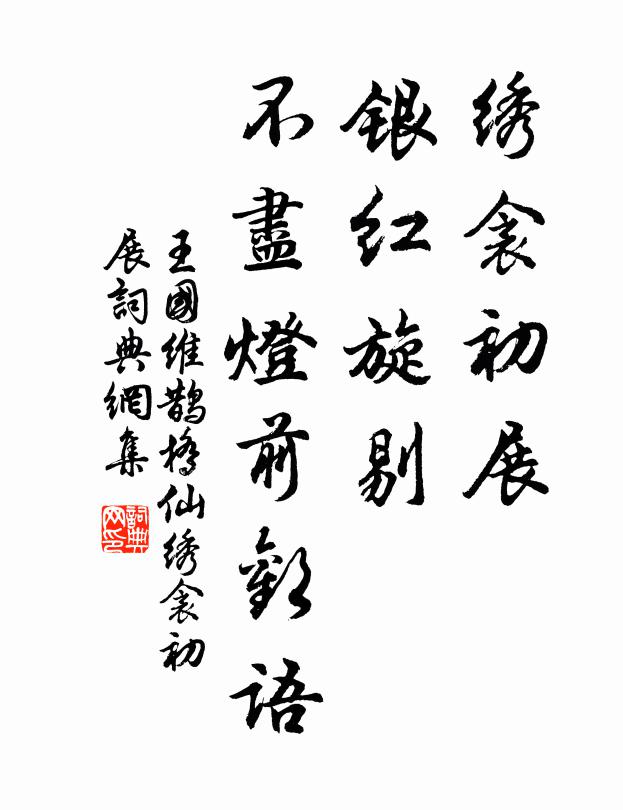 绣衾初展
银红旋剔
不盡燈前歡語
王國維鹊橋仙绣衾初
展詞典網集
詞典
网印